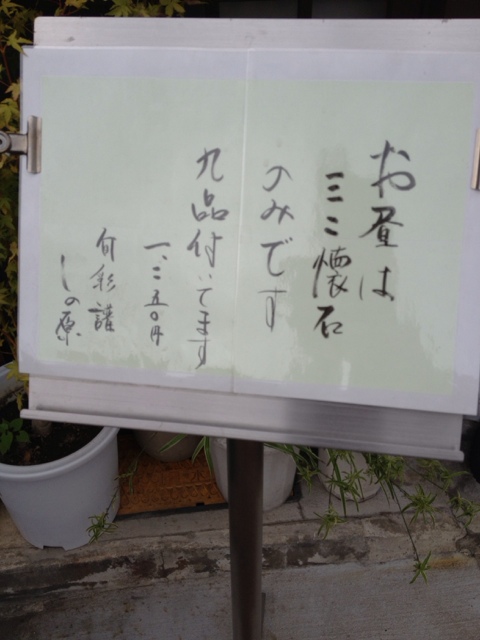 お昼は
ミニ懐石
のみです
九品付いてます
一、二五〇円
旬彩譜
しの原